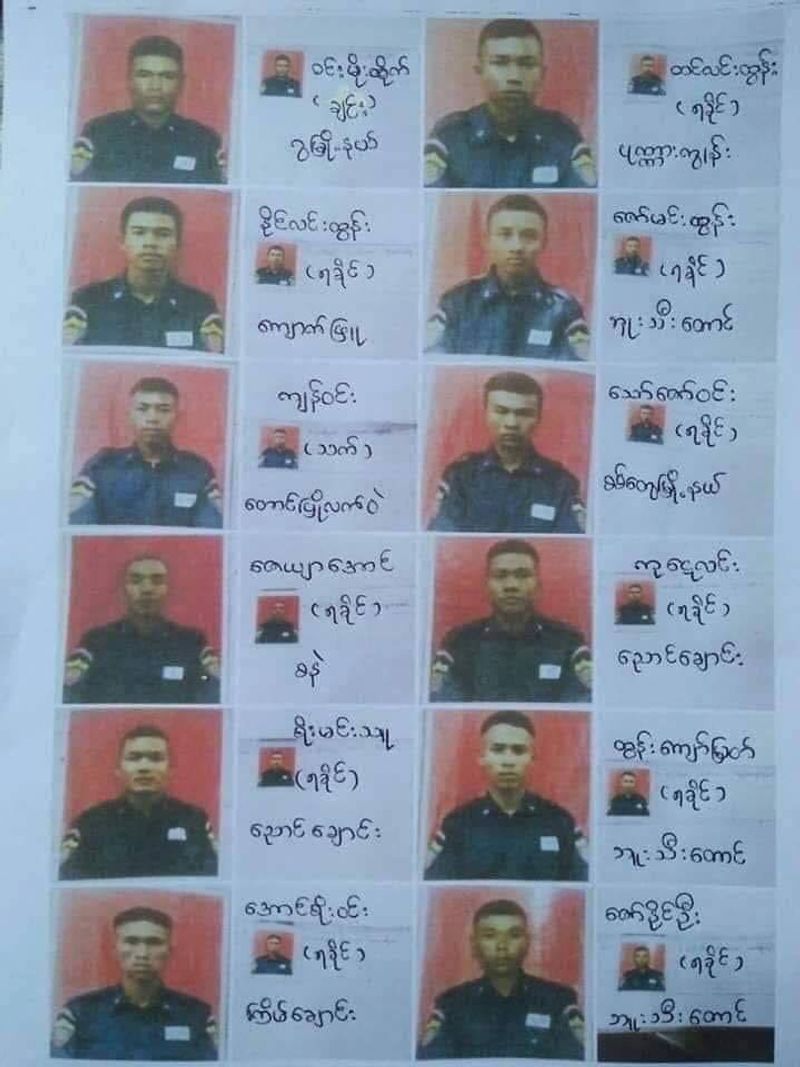 ဝင်းမိုးထိုက်
(ချင်း)
ဂွမြို့နယ်
တင်လင်းထွန်း
(ရခိုင်)
ပုဏ္ဏားကျွန်း
နိုင်လင်းထွန်း
(ရခိုင်)
ကျောက်ဖြူ
ဇော်မင်းထွန်း
(ရခိုင်)
ဘူးသီးတောင်
ကျန်ဝင်း
(သက်)
တောင်မြို့လက်ဝဲ
သော်ဇော်ဝင်း
(ရခိုင်)
စစ်တွေမြို့နယ်
ဇေယျာအောင်
(ရခိုင်)
စနဲ
ကုဋေလင်း
(ရခိုင်)
ညောင်ချောင်း
စိုးမင်းသူ
(ရခိုင်)
ညောင်ချောင်း
ထွန်းကျော်မြတ်
(ရခိုင်)
ဘူးသီးတောင်
အောင်စိုးဝင်း
(ရခိုင်)
ကြိမ်ချောင်း
ဇော်နိုင်ဦး
(ရခိုင်)
ဘူးသီးတောင်